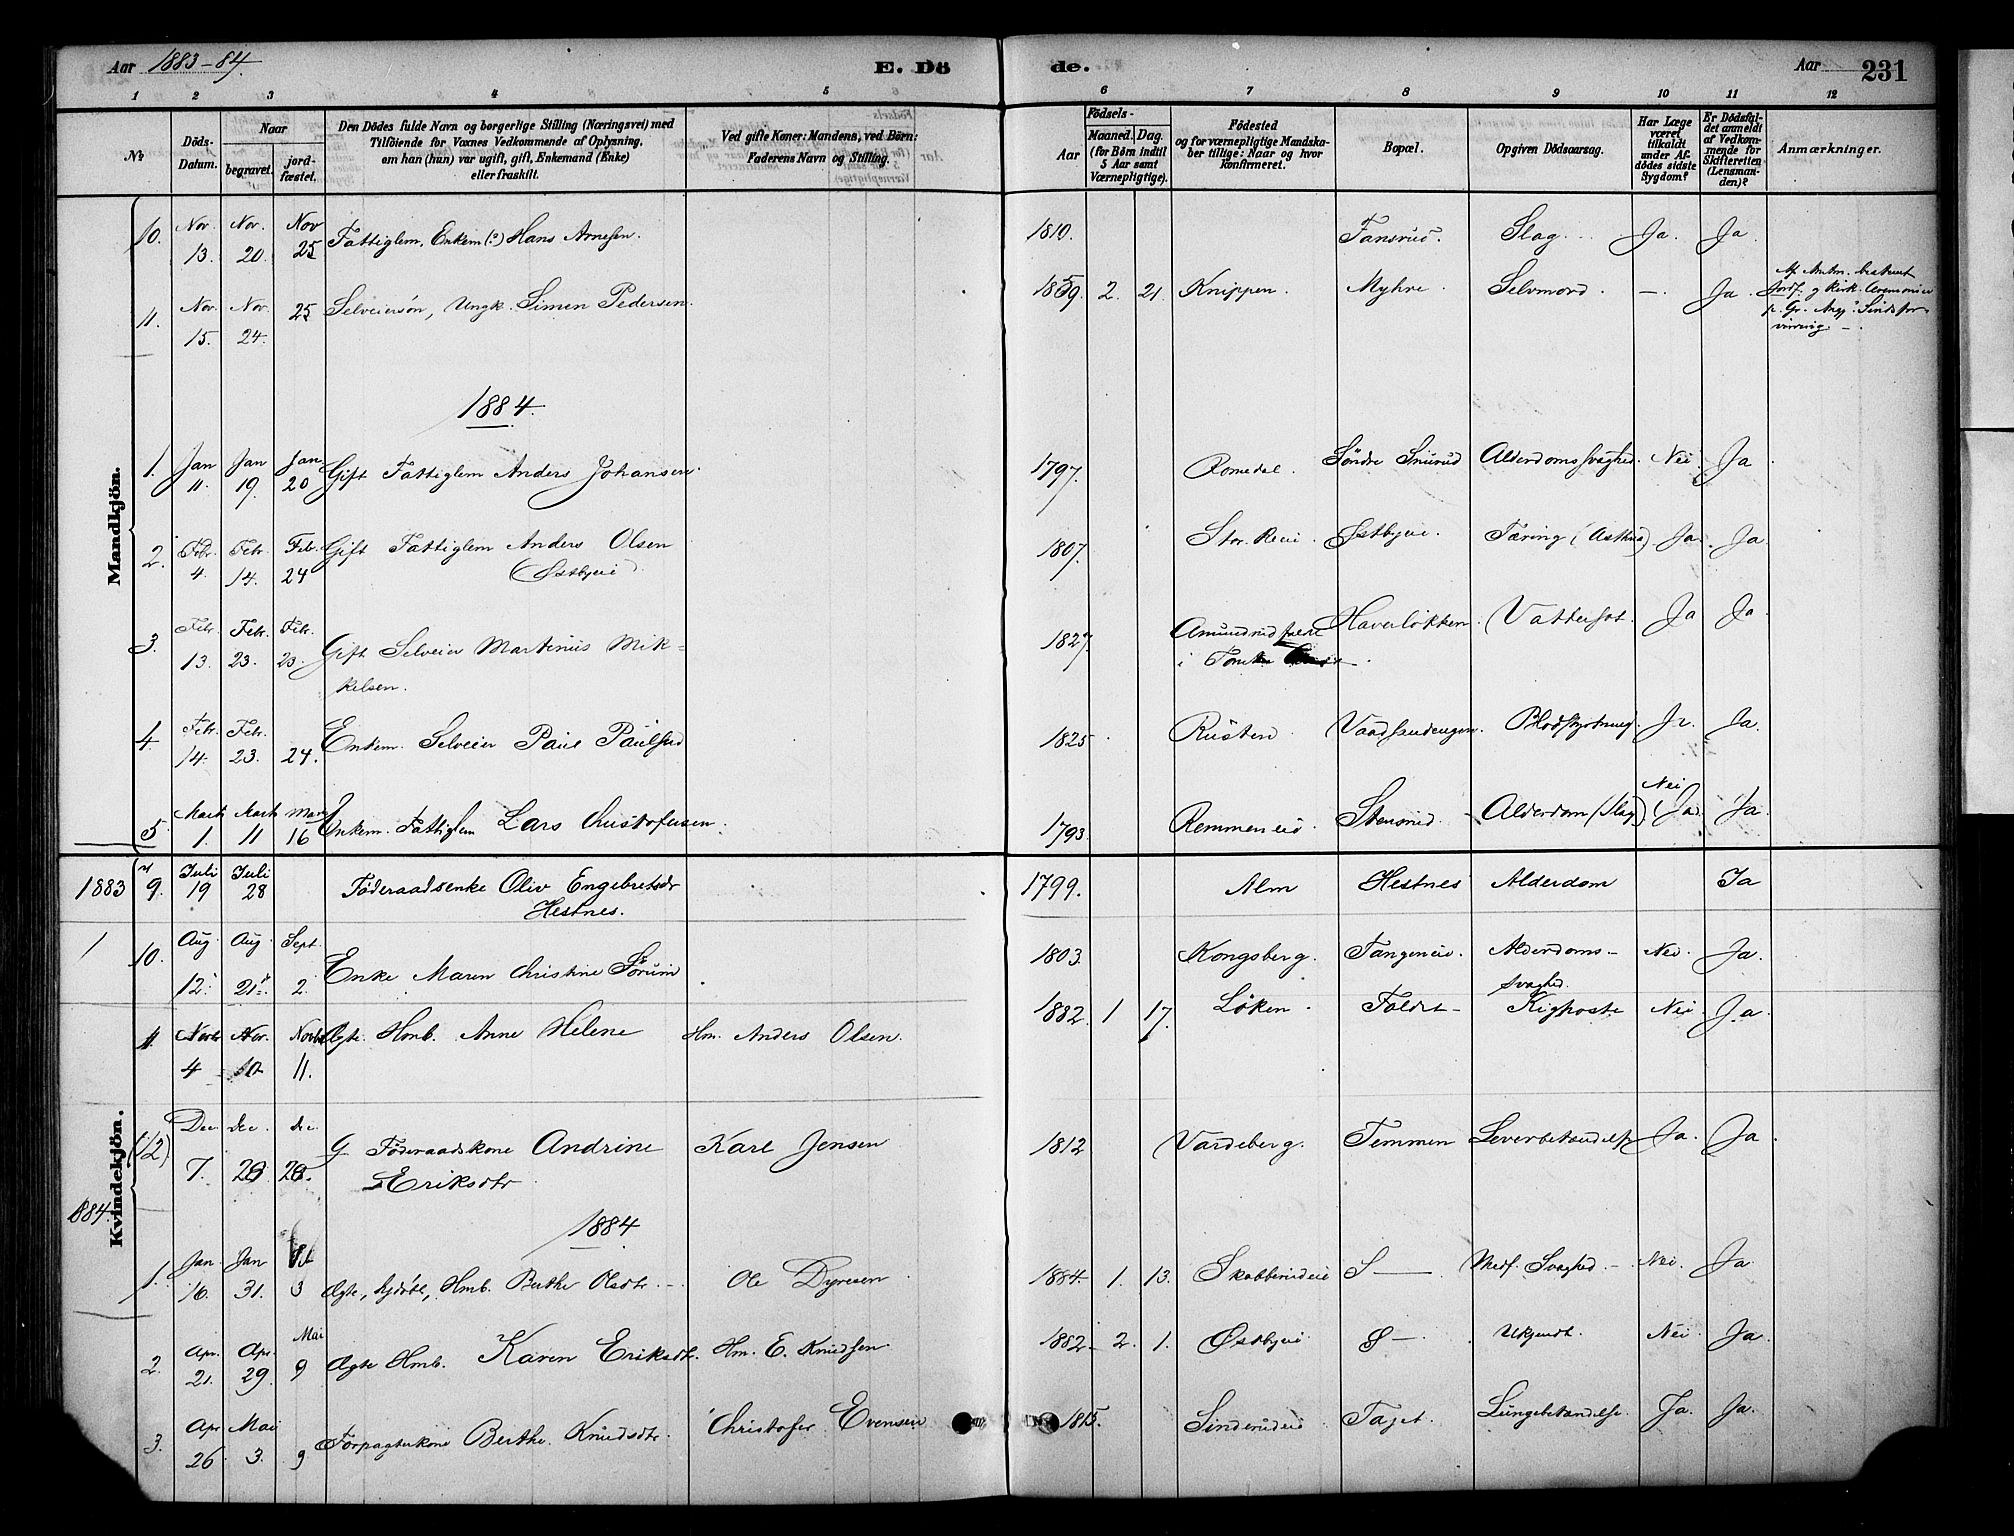 Aar 1883-84.
E. Dö
de.
Aar
231
1 2 3 4 5 6 7 8 9 10 11 12
№
Döds-Datum.
Naar
begravet.
jord-fæstet.
Den Dödes fulde Navn og borgerlige Stilling (Næringsvei) med
Tilföiende for Voxnes Vedkommende af Oplysning,
om han (hun) var ugift, gift, Enkemand (Enke)
eller fraskilt.
Ved gifte Koner: Mandens, ved Börn:
Faderens Navn og Stilling.
Födsels-
Aar
Maaned.
Dag.
(for Börn indtil
5 Aar samt
Værnepligtige).
Födested
og for værnepligtige Mandska-
ber tillige: Naar og hvor
Konfirmeret.
Bopæl.
Opgiven Dödsaarsag.
Har Læge
været
tilkaldt
under Af-
dödes sidste
Sygdom?
Er Dödsfal-
det anmeldt
af Vedkom-
mende for
Skifteretten
(Lensman-
den)?
Anmærkninger.
Mandkjön.
10. Nov. 13. Nov. 20. Nov 25 Fattiglem, Enkem (?) Hans Arnesen. 1810. Fansrud. Slag. Ja. Ja.
11. Nov. 15. Nov. 24. 25 Selveiersön, Ungk. Simen Pedersen. 1859. 2. 21. Knippen. Myhre. Selvmord. —. Ja.
1884.
1. Jan 11. Jan 19. Jan 20 Gift Fattiglem Anders Johansen. 1797. Romedal. Söndre Snurud Alderdomssvaghed. Nei. Ja.
2. Febr. 4. Febr. 14. Febr. 24 Gift Fattiglem Anders Olsen 1807. Stor. Østbyeie. Tæring (Asthma) Ja. Ja.
(Østbyeie)
3. Febr. 13. Febr. 23. Febr. 23. Gift Selveier Martinus Mik- 1827. Amundrud Haverlökken. Vattersot. Ja Ja.
kelsen. i
4 Febr. 14. Febr. 23. 24. Enkem. Selveier Paul Paulsen 1825 Rusten Blodstyrtning. Ja. Ja.
5. Marts 1. Marts 11 Marts 16 Enkem. Fattiglem Lars Christofersen. 1793. Remmeneie. Stensrud. Alderdom (Slag) Nei (Ja) Ja.
Kvindekjön.
1883 9. Juli 19 Juli 28 Föderaadsenke Oliv Engebretsdr 1799. Alm Hestnes Alderdom Ja
Hestnes.
1 10. Aug. 12. Aug. 21. Sept. 2. Enke Maren Christine Sörum 1803. Kongsberg. Tangeneie. Alderdoms- Nei. Ja.
svaghed.
11. Novbr 4 Nov. 10 Novbr 11. Ægte. Hmb. Anne Helene Hm. Anders Olsen. 1882. 1 17. Löken. Faldet Kighoste Nei Ja.
(12) Dec 7. dec. 28 dec. G. Föderaadskone Andrine Karl Jensen 1812 Vardeberg. Temmen Leverbetændelse Ja. Ja.
Eriksdtr
1884.
1884
1. Jan. 16. Jan 31. 3 Ægte, hjdöbt, Hmb. Berthe Olsdtr. Ole Dyresen 1884. 1. 13. Skabberudeie S— Medf. Svaghed. Nei. Ja
2. Apr. 21. Apr. 29. Mai 9 Ægte Hmb. Karen Eriksdtr. Hm. E. Knudsen. 1882. 2. 1. Østbyeie Ø— Ukjendt. Nei. Ja.
3. Apr 26. Mai 3. 9 Forpagterkone Berthe Knudsdtr. Christofer Evensen 1815. Sinderudeie Taget. Lungebetændelse. Ja. Ja.